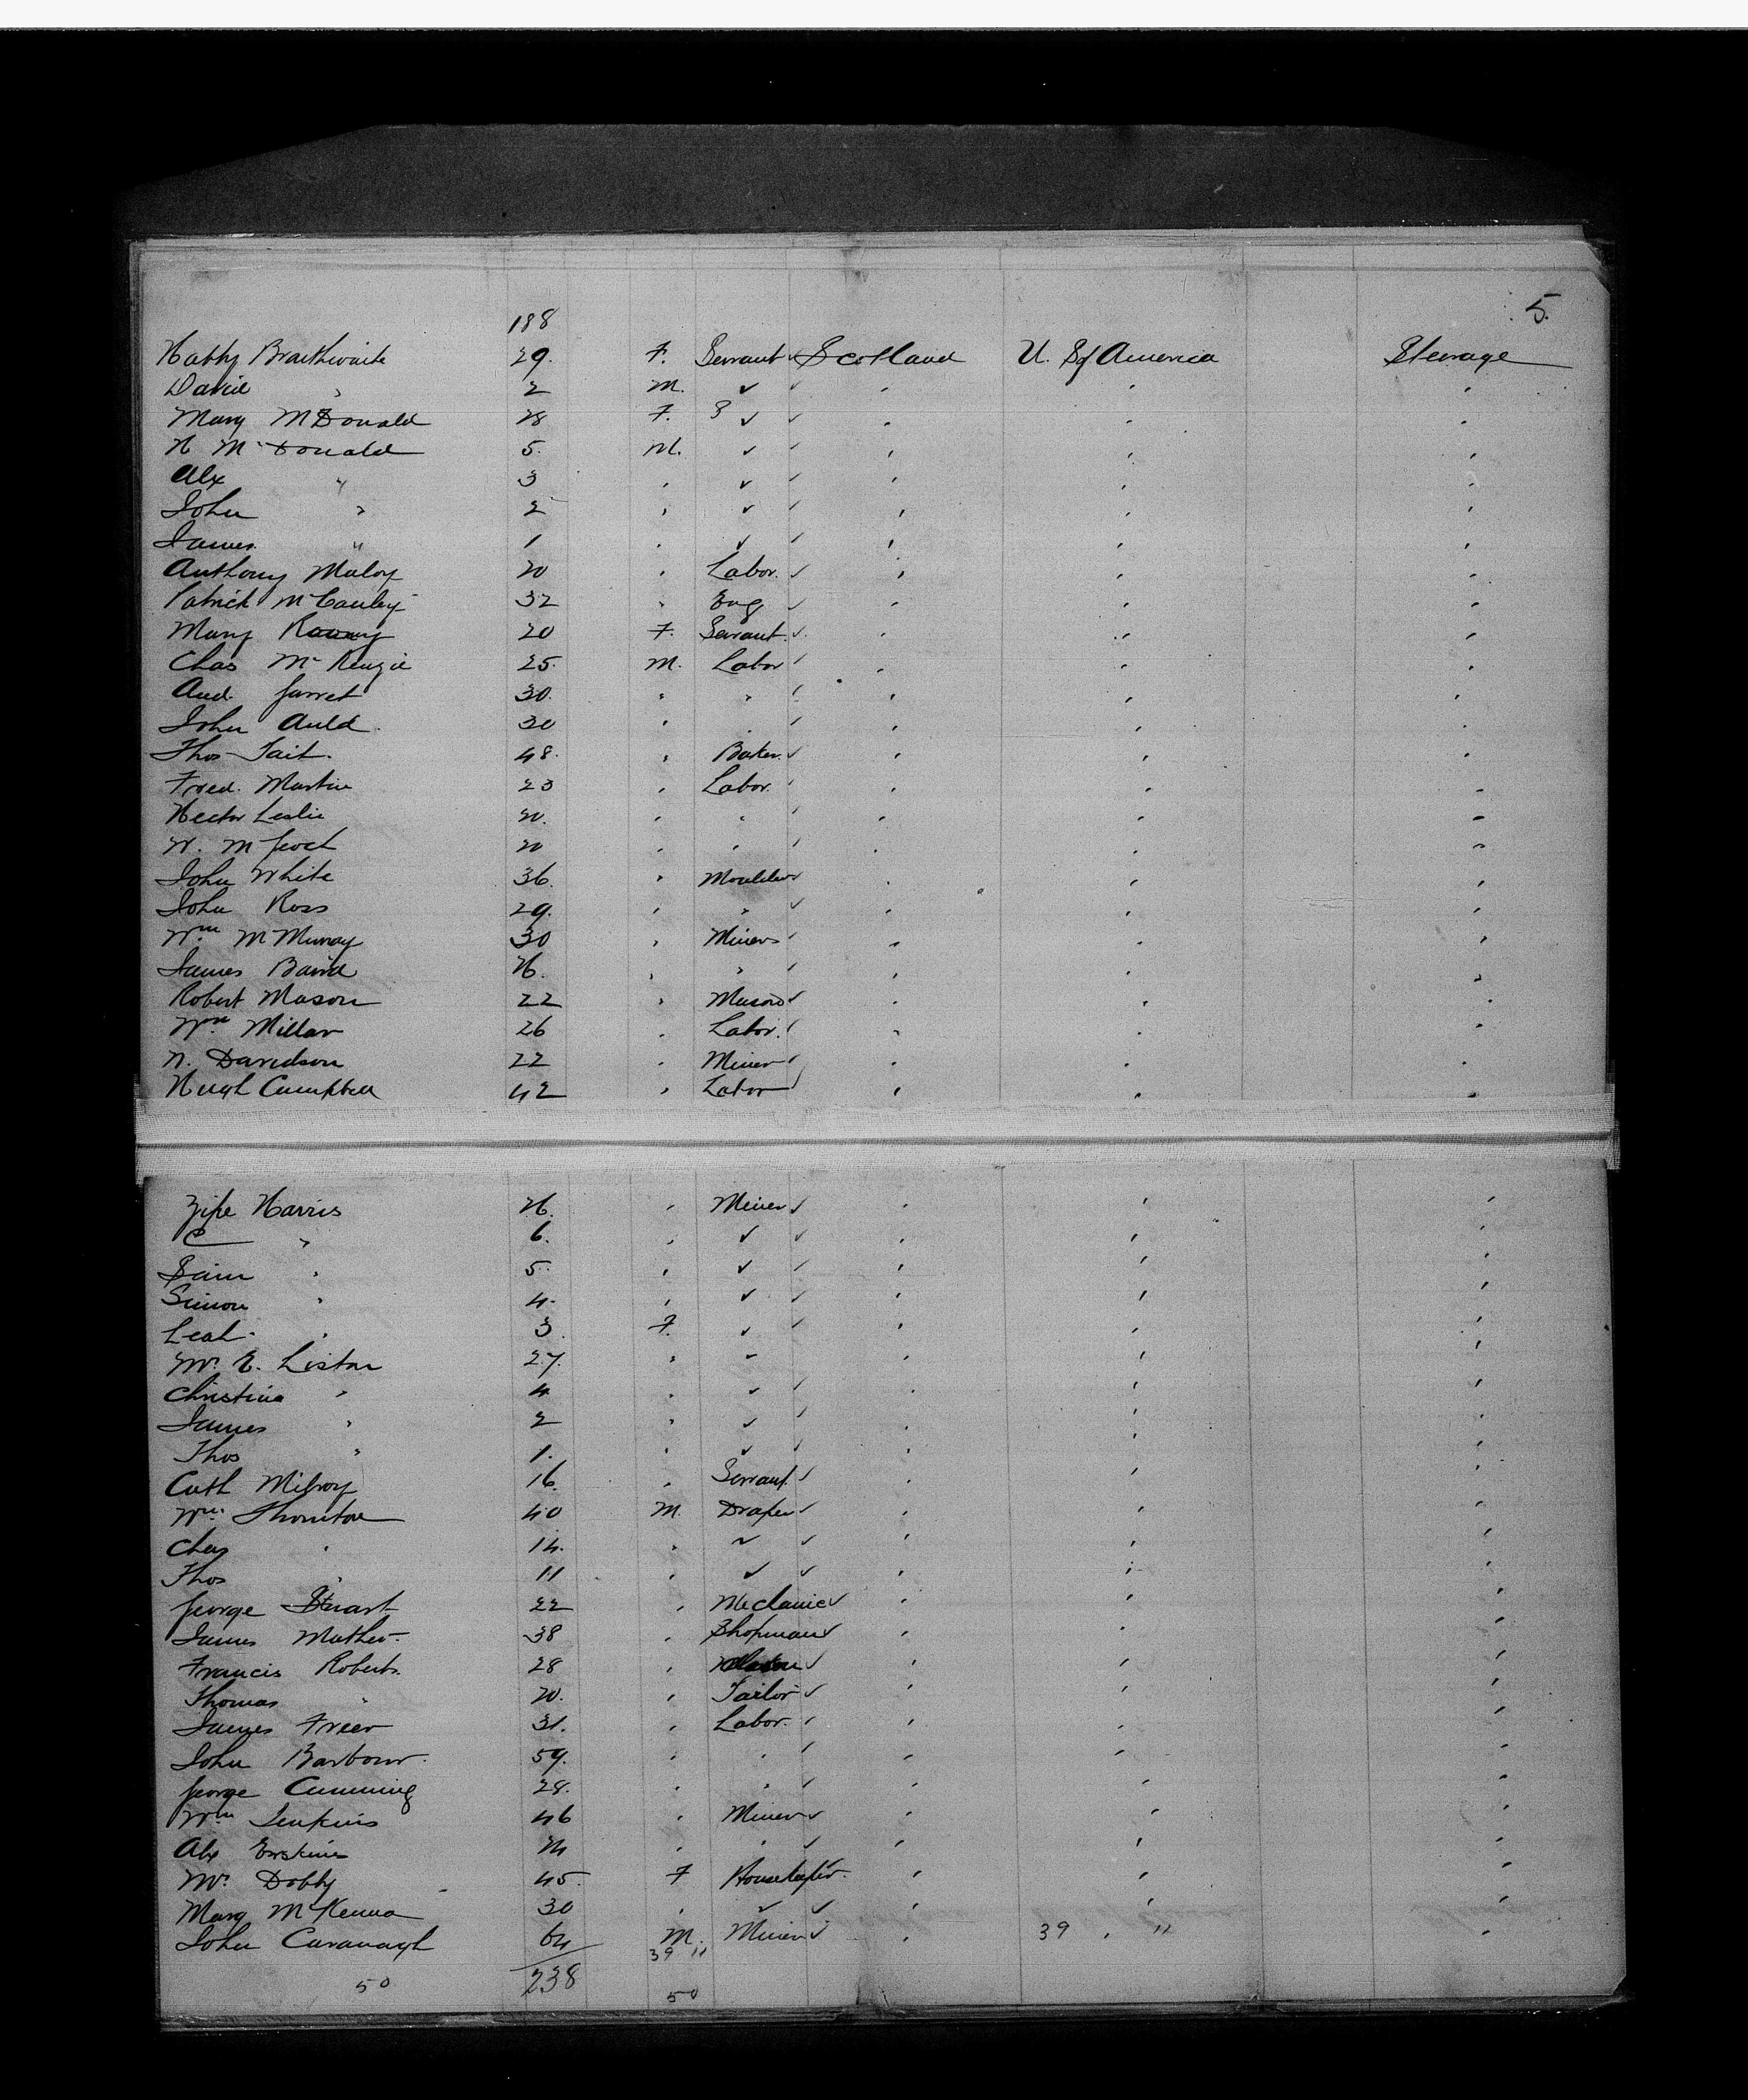 5.
188
Habby Braithwaite 29. F. Servant ✓ Scotland U. S of America Steerage
David " 2 M. ✓ ✓ " " "
Mary McDonald 28 F. S ✓ ✓ " " "
H McDonald 5. M. ✓ ✓ " " "
Alx " 3 " ✓ ✓ " " "
John " 2 " ✓ ✓ " " "
James " 1 " ✓ ✓ " " "
Anthony Maloy 20 " Labor. ✓ " " "
Patrick McCauley 32 " Eng ✓ " " "
Mary 20 F. Servant. ✓ " " "
Chas McKenzie 25. M. Labor ✓ " " "
And. Garret 30. " " ✓ " " "
John Auld. 30 " " ✓ " " "
Thos Tait. 48. " Baker. ✓ " " "
Fred. Martin 23 " Labor. ✓ " " "
Hector Leslie 20. " " ✓ " " "
W. M 20 " " ✓ " " "
John White 36. " Moulder ✓ " " "
John Ross 29. " " ✓ " " "
Wm. McMurray 30 " Miners ✓ " " "
James Baird 26. " " ✓ " " "
Robert Mason 22 " Mason ✓ " " "
Wm. Millar 26 " Labor. ✓ " " "
N. Davidson 22 " Miner ✓ " " "
Hugh Campbell 42 " Labor ✓ " " "
Harris 26. " Miner ✓ " " "
C " 6. " ✓ ✓ " " "
Sam " 5. " ✓ ✓ " " "
Simon " 4. " ✓ ✓ " " "
Leah. " 3. F. ✓ ✓ " " "
Mrs. E. Liston 27. " ✓ ✓ " " "
Christina " 4 " ✓ ✓ " " "
James " 2 " ✓ ✓ " " "
Thos " 1. " ✓ ✓ " " "
Cath Milroy 16. " Servant. ✓ " " "
Wm. Thornton 40 M. Draper ✓ " " "
Chas " 14. " ✓ ✓ " " "
Thos " 11 " ✓ ✓ " " "
George Stuart 22 " Mechanic ✓ " " "
James Mather. 38 " Shopman ✓ " " "
Francis Roberts. 28 " ✓ " " "
Thomas " 20. " Tailor ✓ " " "
James Freer 31. " Labor. ✓ " " "
John Barbour. 59. " " ✓ " " "
George Cumming 28. " " ✓ " " "
Wm Jenkins 46 " Miner ✓ " " "
Alx Erskine 24 " " ✓ " " "
Mrs. Dobby 45. F Housekeeper. ✓ " " "
Mary McKenna 30 " ✓ ✓ " " "
John Cavanagh 64 M. Miner ✓ " 39 " 11 "
39 11
50 238 50